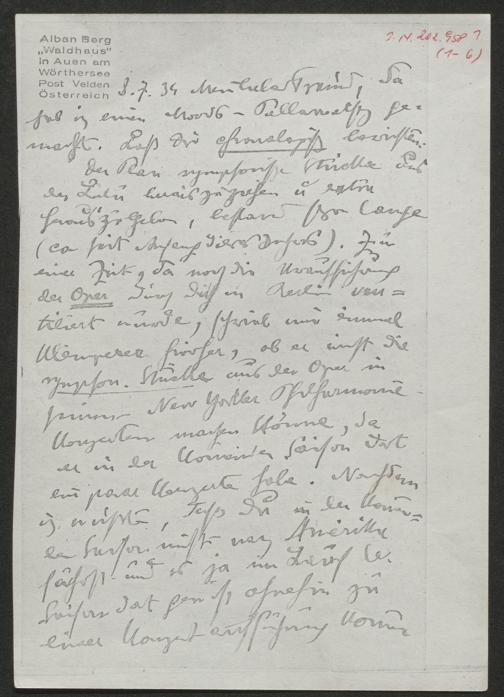 Alban Berg
„Waldhaus"
in Auen am
Wörthersee
Post Velden
Österreich
I.N. 202.958
(1-6)
8.7.34 Freund, Da
hab ich einen Mords-
macht. Laß Dir chronologisch berichten:
Der Plan symphonische Stücke aus
der Lulu herauszuziehen u extra
herauszugeben, bestand schon lange
(ca seit Anfang dieses Jahres). Zur
einer Zeit, da noch die Uraufführung
der Oper durch Dich in Berlin ven=
tiliert wurde, schrieb mir einmal
Klemperer hierher, ob er nicht die
symphon. Stücke aus der Oper in
seinen New Yorker Philharmonie-
Konzerten machen könne, da
er in der kommenden Saison dort
ein paar Konzerte habe. Nachdem
ich wußte, daß Du in der kommen=
den Saison nicht nach Amerika
fährst und es ja im Lauf der
Saison dort gewiß ohnehin zu
einer Konzertaufführung kommen